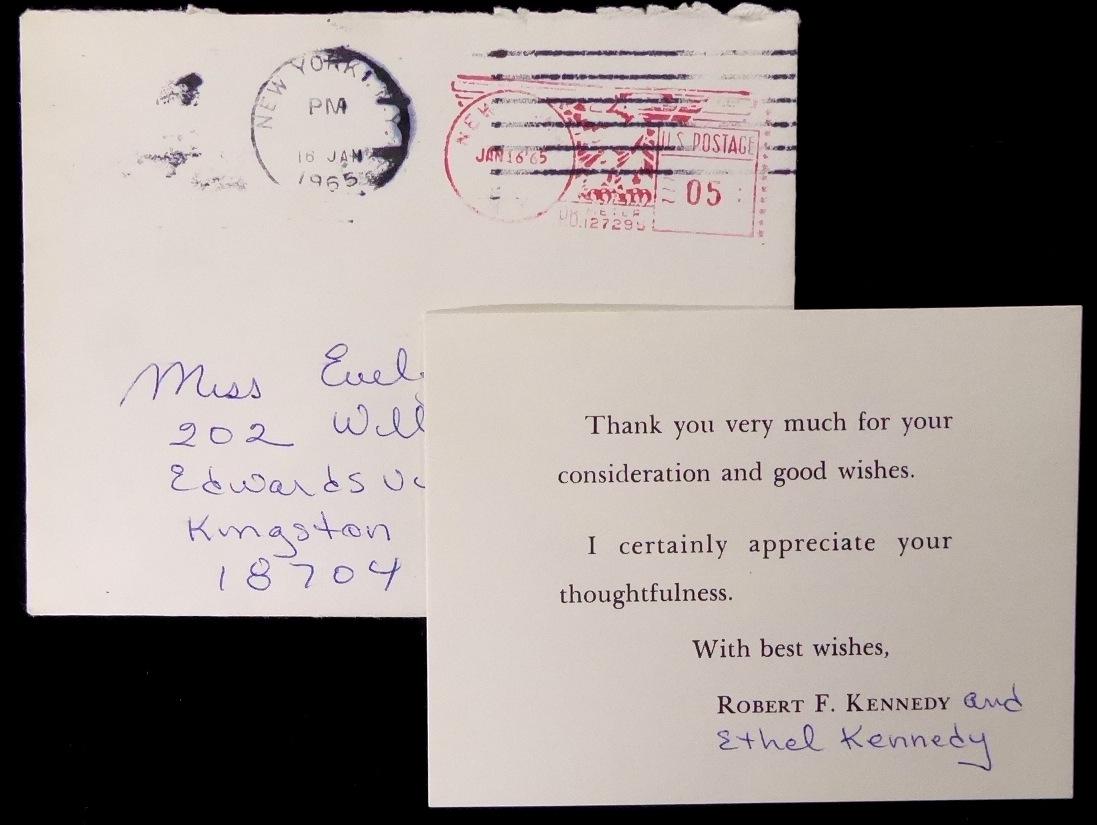 NEW YORK, N.Y.
PM
16 JAN
1965
NEW
JAN 16 '65
U.S. POSTAGE
05
METER
NO.127295
Miss
202
Edwardsv
Kingston
18704
Thank you very much for your
consideration and good wishes.
I certainly appreciate your
thoughtfulness.
With best wishes,
ROBERT F. KENNEDY and
Ethel Kennedy